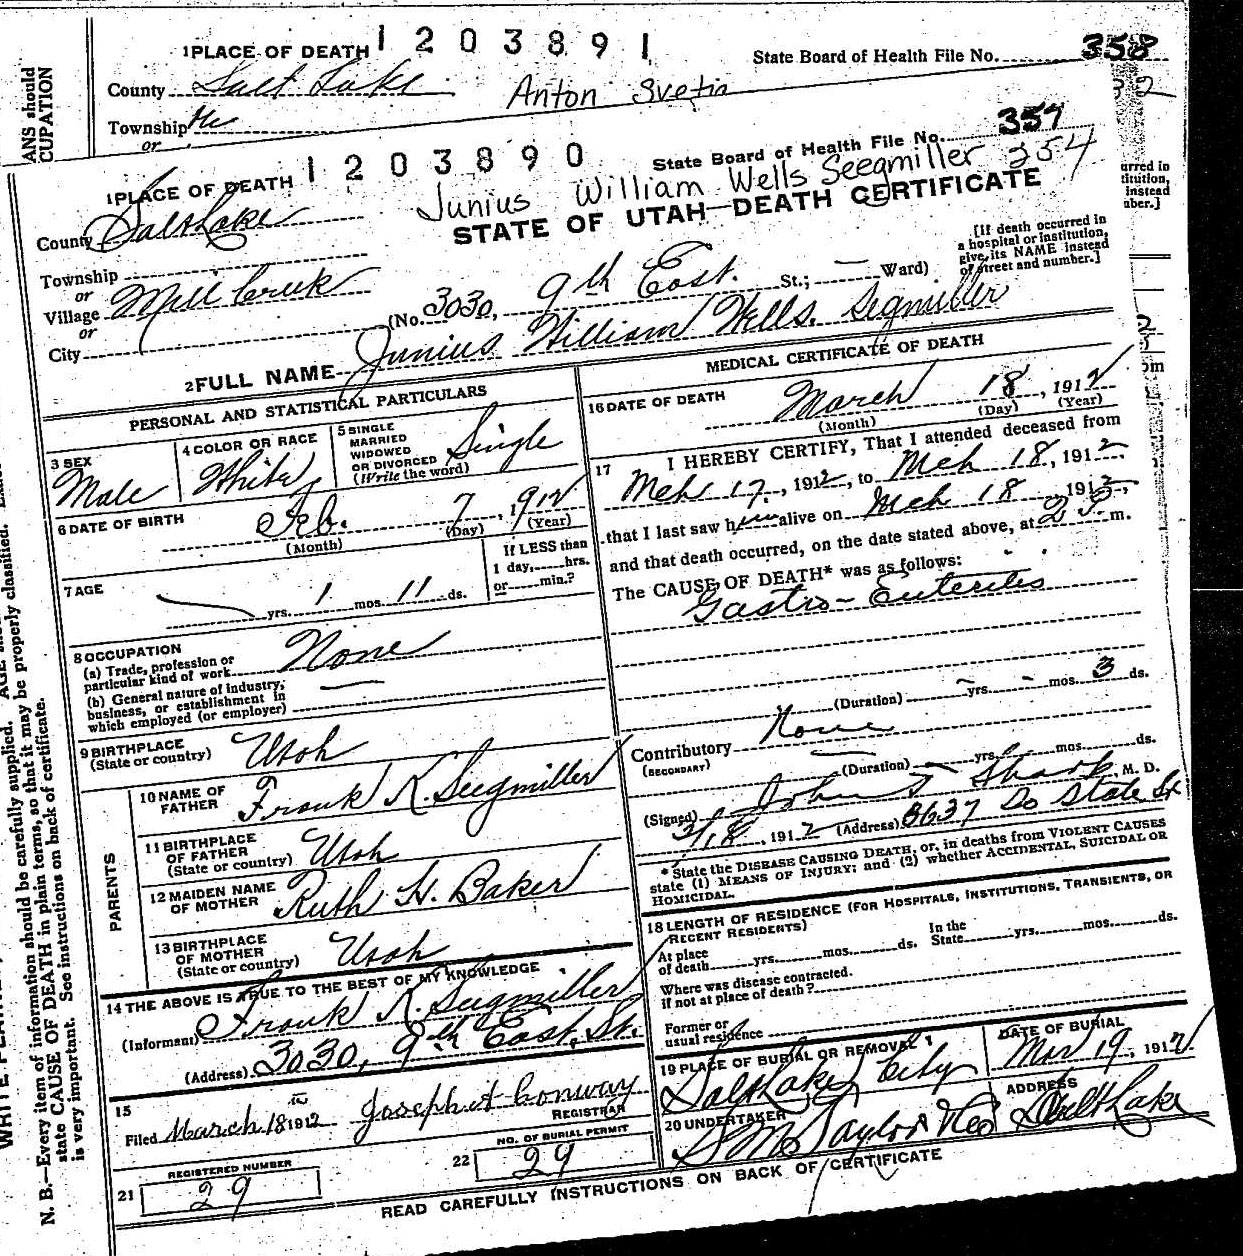 1 PLACE OF DEATH 1 2 0 3 8 9 1
State Board of Health File No. 358
County Salt Lake
Anton Svetin
Township
or
ANS should
CUPATION
1 2 0 3 8 9 0
State Board of Health File No. 357
Junius William Wells Seegmiller 254
1 PLACE OF DEATH
STATE OF UTAH—DEATH CERTIFICATE
County Salt Lake
[If death occurred in
a hospital or institution,
give its NAME instead
of street and number.]
Township
or
Village Mill Creek
or
City
(No. 3030, 9th East. St.; — Ward)
2 FULL NAME Junius William Wells. Segmiller
PERSONAL AND STATISTICAL PARTICULARS
3 SEX
Male
4 COLOR OR RACE
White
5 SINGLE
MARRIED
WIDOWED
OR DIVORCED
(Write the word)
Single
6 DATE OF BIRTH
Feb. 7, 1912
(Month) (Day) (Year)
7 AGE
yrs. 1 mos. 11 ds.
If LESS than
1 day, hrs.
or min.?
8 OCCUPATION
(a) Trade, profession or
particular kind of work None
(b) General nature of industry,
business, or establishment in
which employed (or employer)
9 BIRTHPLACE
(State or country)
Utah
PARENTS
10 NAME OF
FATHER
Frank K. Seegmiller
11 BIRTHPLACE
OF FATHER
(State or country)
Utah
12 MAIDEN NAME
OF MOTHER
Ruth H. Baker
13 BIRTHPLACE
OF MOTHER
(State or country)
Utah
14 THE ABOVE IS TRUE TO THE BEST OF MY KNOWLEDGE
(Informant) Frank K. Seegmiller
(Address) 3030, 9th East, St.
15
Filed March 18 1912 Joseph A Conway
REGISTRAR
21
REGISTERED NUMBER
29
22
NO. OF BURIAL PERMIT
29
MEDICAL CERTIFICATE OF DEATH
16 DATE OF DEATH
March 18, 1912
(Month) (Day) (Year)
17 I HEREBY CERTIFY, That I attended deceased from
Mch 17, 1912, to Mch 18, 1912,
that I last saw him alive on Mch 18, 1912,
and that death occurred, on the date stated above, at 2 P. m.
The CAUSE OF DEATH* was as follows:
Gastro-Enteritis
(Duration) - yrs. - mos. 3 ds.
Contributory None
(SECONDARY)
(Duration) yrs. mos. ds.
(Signed) John T Sharp M. D.
3/18, 1912 (Address) 3637 So State St
* State the DISEASE CAUSING DEATH, or, in deaths from VIOLENT CAUSES
state (1) MEANS OF INJURY; and (2) whether ACCIDENTAL, SUICIDAL OR
HOMICIDAL.
18 LENGTH OF RESIDENCE (FOR HOSPITALS, INSTITUTIONS, TRANSIENTS, OR
RECENT RESIDENTS)
At place
of death yrs. mos. ds.
In the
State yrs. mos. ds.
Where was disease contracted.
if not at place of death?
Former or
usual residence
19 PLACE OF BURIAL OR REMOVAL
Salt Lake City
DATE OF BURIAL
Mar 19, 1912
20 UNDERTAKER
S M Taylor & Co
ADDRESS
Salt Lake
READ CAREFULLY INSTRUCTIONS ON BACK OF CERTIFICATE
N. B.—Every item of information should be carefully supplied.
state CAUSE OF DEATH in plain terms, so that it may be properly classified.
is very important. See instructions on back of certificate.
urred in
titution,
instead
mber.]